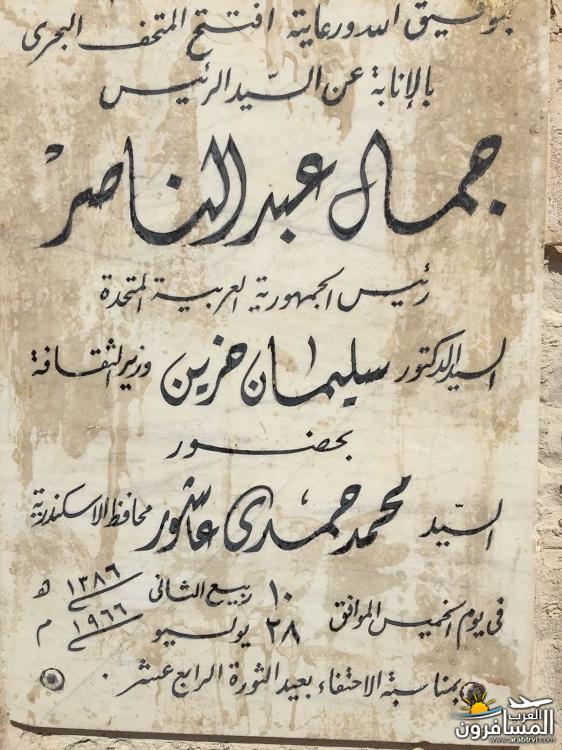 بتوفيق الله ورعايته افتتح المتحف البحرى
بالإنابة عن السيد الرئيس
جمال عبد الناصر
رئيس الجمهورية العربية المتحدة
السيد الدكتور سليمان حزين وزير الثقافة
بحضور
السيد محمد حمدى عاشور محافظ الاسكندرية
فى يوم الخميس الموافق ١٠ ربيع الثانى ١٣٨٦ ھ
٢٨ يوليو ١٩٦٦ م
بمناسبة الاحتفاء بعيد الثورة الرابع عشر .
العرب
المسافرون
www.arabtrvl.com